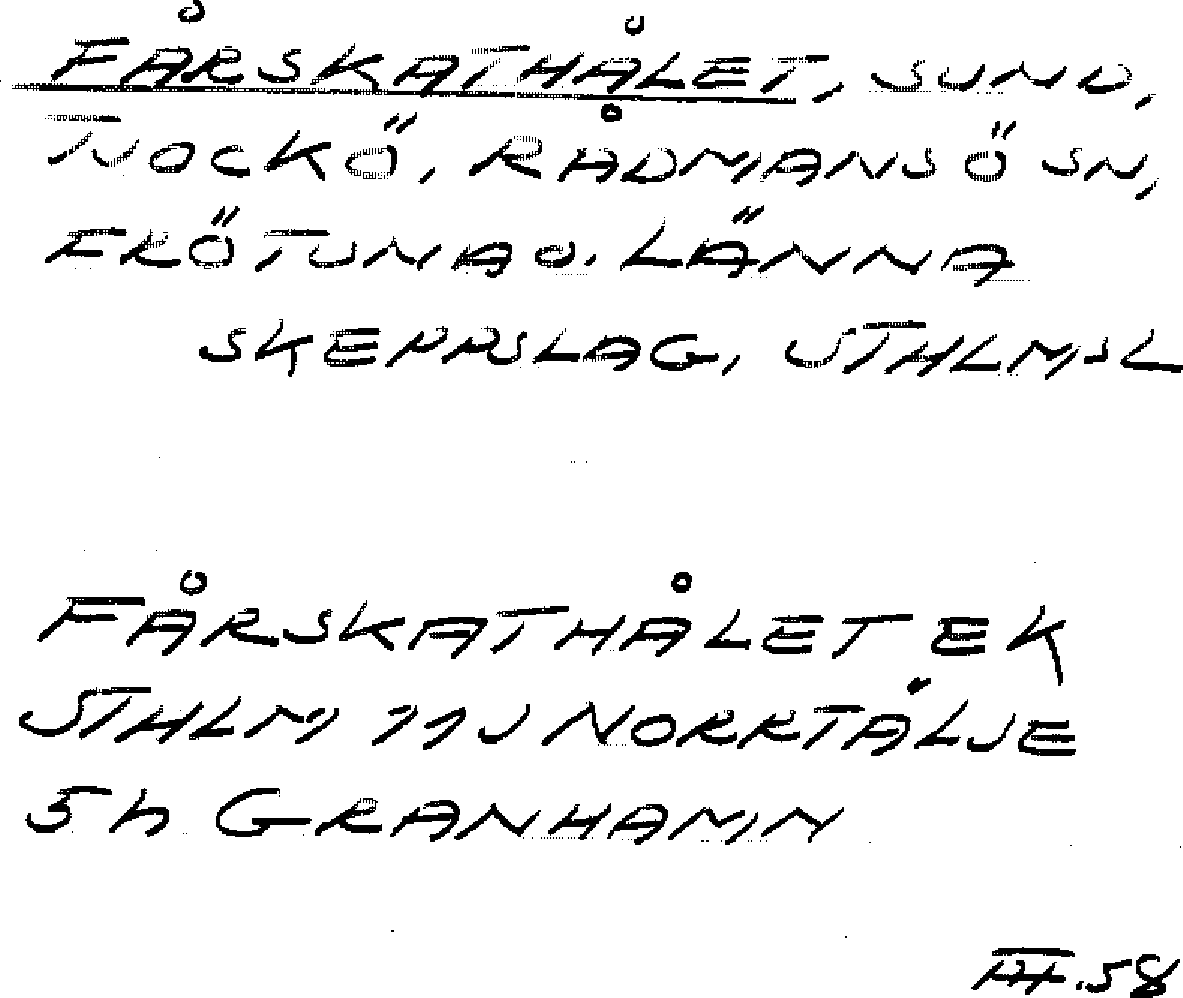 FÅRSKATHÅLET, SUND,
TJOCKÖ, RÅDMANSÖ SN,
FRÖTUNA O. LÄNNA
SKEPPSLAG, STHLMSL
FÅRSKATHÅLET EK
STHLM 11J NORRTÄLJE
5h GRANHAMN